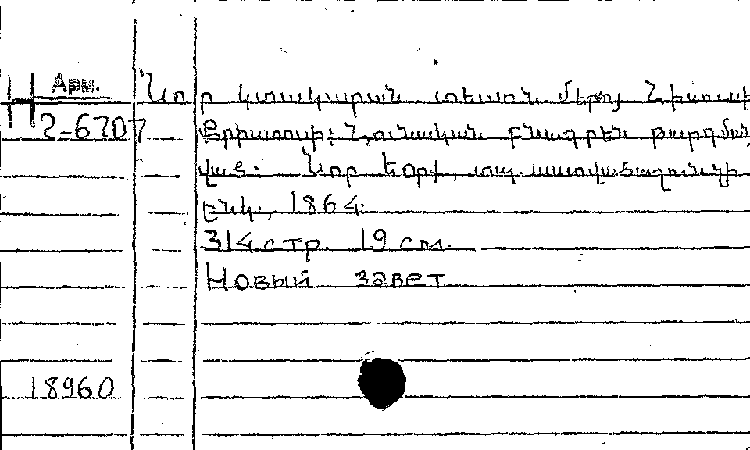 Арм.
Н
2-6707
Նոր կտակարան տեառն մերոյ Յիսուսի
Քրիստոսի: Յունական բնագրէն թարգման
ված: Նոր Եօրք, տպ. աստվածաշունչի
ընկ., 1864
314 стр. 19 см.
Новый завет
18960